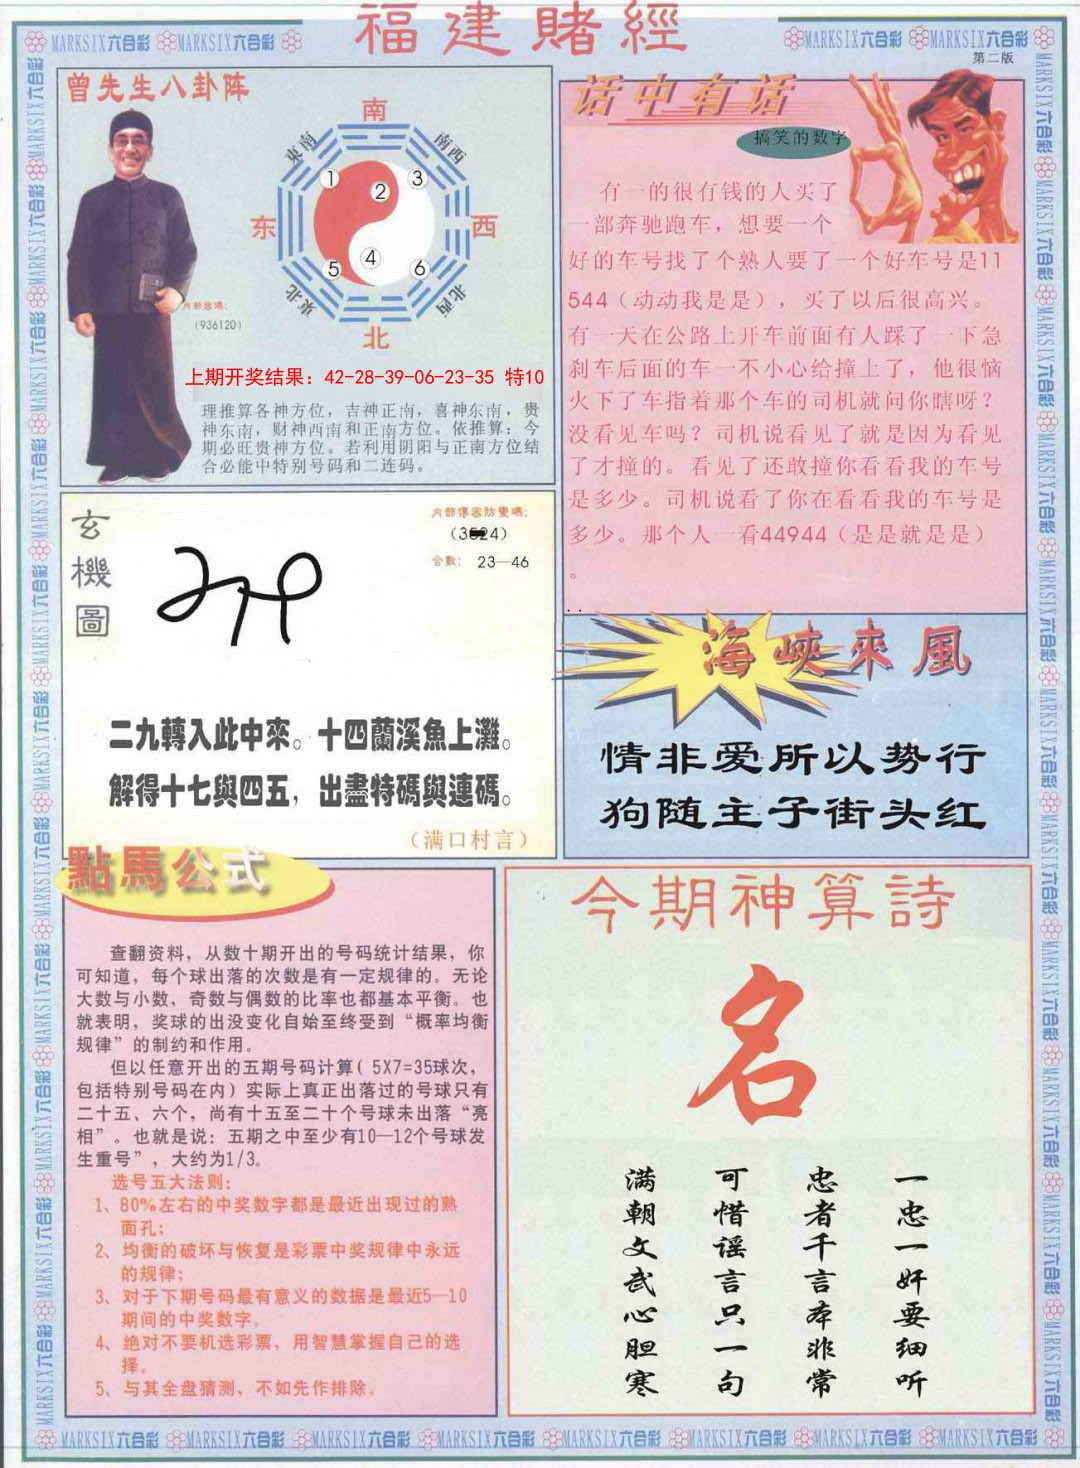 福建賭經
MARKSIX六合彩 MARKSIX六合彩
MARKSIX六合彩 MARKSIX六合彩
第二版
曾先生八卦阵
南
東南
南西
1
2
3
东
西
4
5
6
東北
北西
北
内部密碼:
(936120)
上期开奖结果：42-28-39-06-23-35 特10
理推算各神方位，吉神正南，喜神东南，贵
神东南，财神西南和正南方位。依推算：今
期必旺贵神方位。若利用阴阳与正南方位结
合必能中特别号码和二连码。
话中有话
搞笑的数字
有一的很有钱的人买了
一部奔驰跑车，想要一个
好的车号找了个熟人要了一个好车号是11
544（动动我是是），买了以后很高兴。
有一天在公路上开车前面有人踩了一下急
刹车后面的车一不小心给撞上了，他很恼
火下了车指着那个车的司机就问你瞎呀？
没看见车吗？司机说看见了就是因为看见
了才撞的。看见了还敢撞你看看我的车号
是多少。司机说看了你在看看我的车号是
多少。那个人一看44944（是是就是是）
。
玄機圖
内部傳密防變碼:
合數: 23—46
二九轉入此中來。十四蘭溪魚上灘。
解得十七與四五，出盡特碼與連碼。
（满口村言）
海峽來風
情非爱所以势行
狗随主子街头红
點馬公式
查翻资料，从数十期开出的号码统计结果，你
可知道，每个球出落的次数是有一定规律的。无论
大数与小数，奇数与偶数的比率也都基本平衡。也
就表明，奖球的出没变化自始至终受到“概率均衡
规律”的制约和作用。
但以任意开出的五期号码计算( 5X7=35球次，
包括特别号码在内）实际上真正出落过的号球只有
二十五、六个，尚有十五至二十个号球未出落“亮
相”。也就是说：五期之中至少有10—12个号球发
生重号”，大约为1/3。
选号五大法则：
1、80%左右的中奖数字都是最近出现过的熟
面孔；
2、均衡的破坏与恢复是彩票中奖规律中永远
的规律；
3、对于下期号码最有意义的数据是最近5—10
期间的中奖数字。
4、绝对不要机选彩票，用智慧掌握自己的选
择。
5、与其全盘猜测，不如先作排除。
今期神算詩
名
一忠一奸要细听
忠者千言本非常
可惜谣言只一句
满朝文武心胆寒
MARKSIX六合彩 MARKSIX六合彩 MARKSIX六合彩 MARKSIX六合彩 MARKSIX六合彩 MARKSIX六合彩 MARKSIX六合彩 MARKSIX六合彩